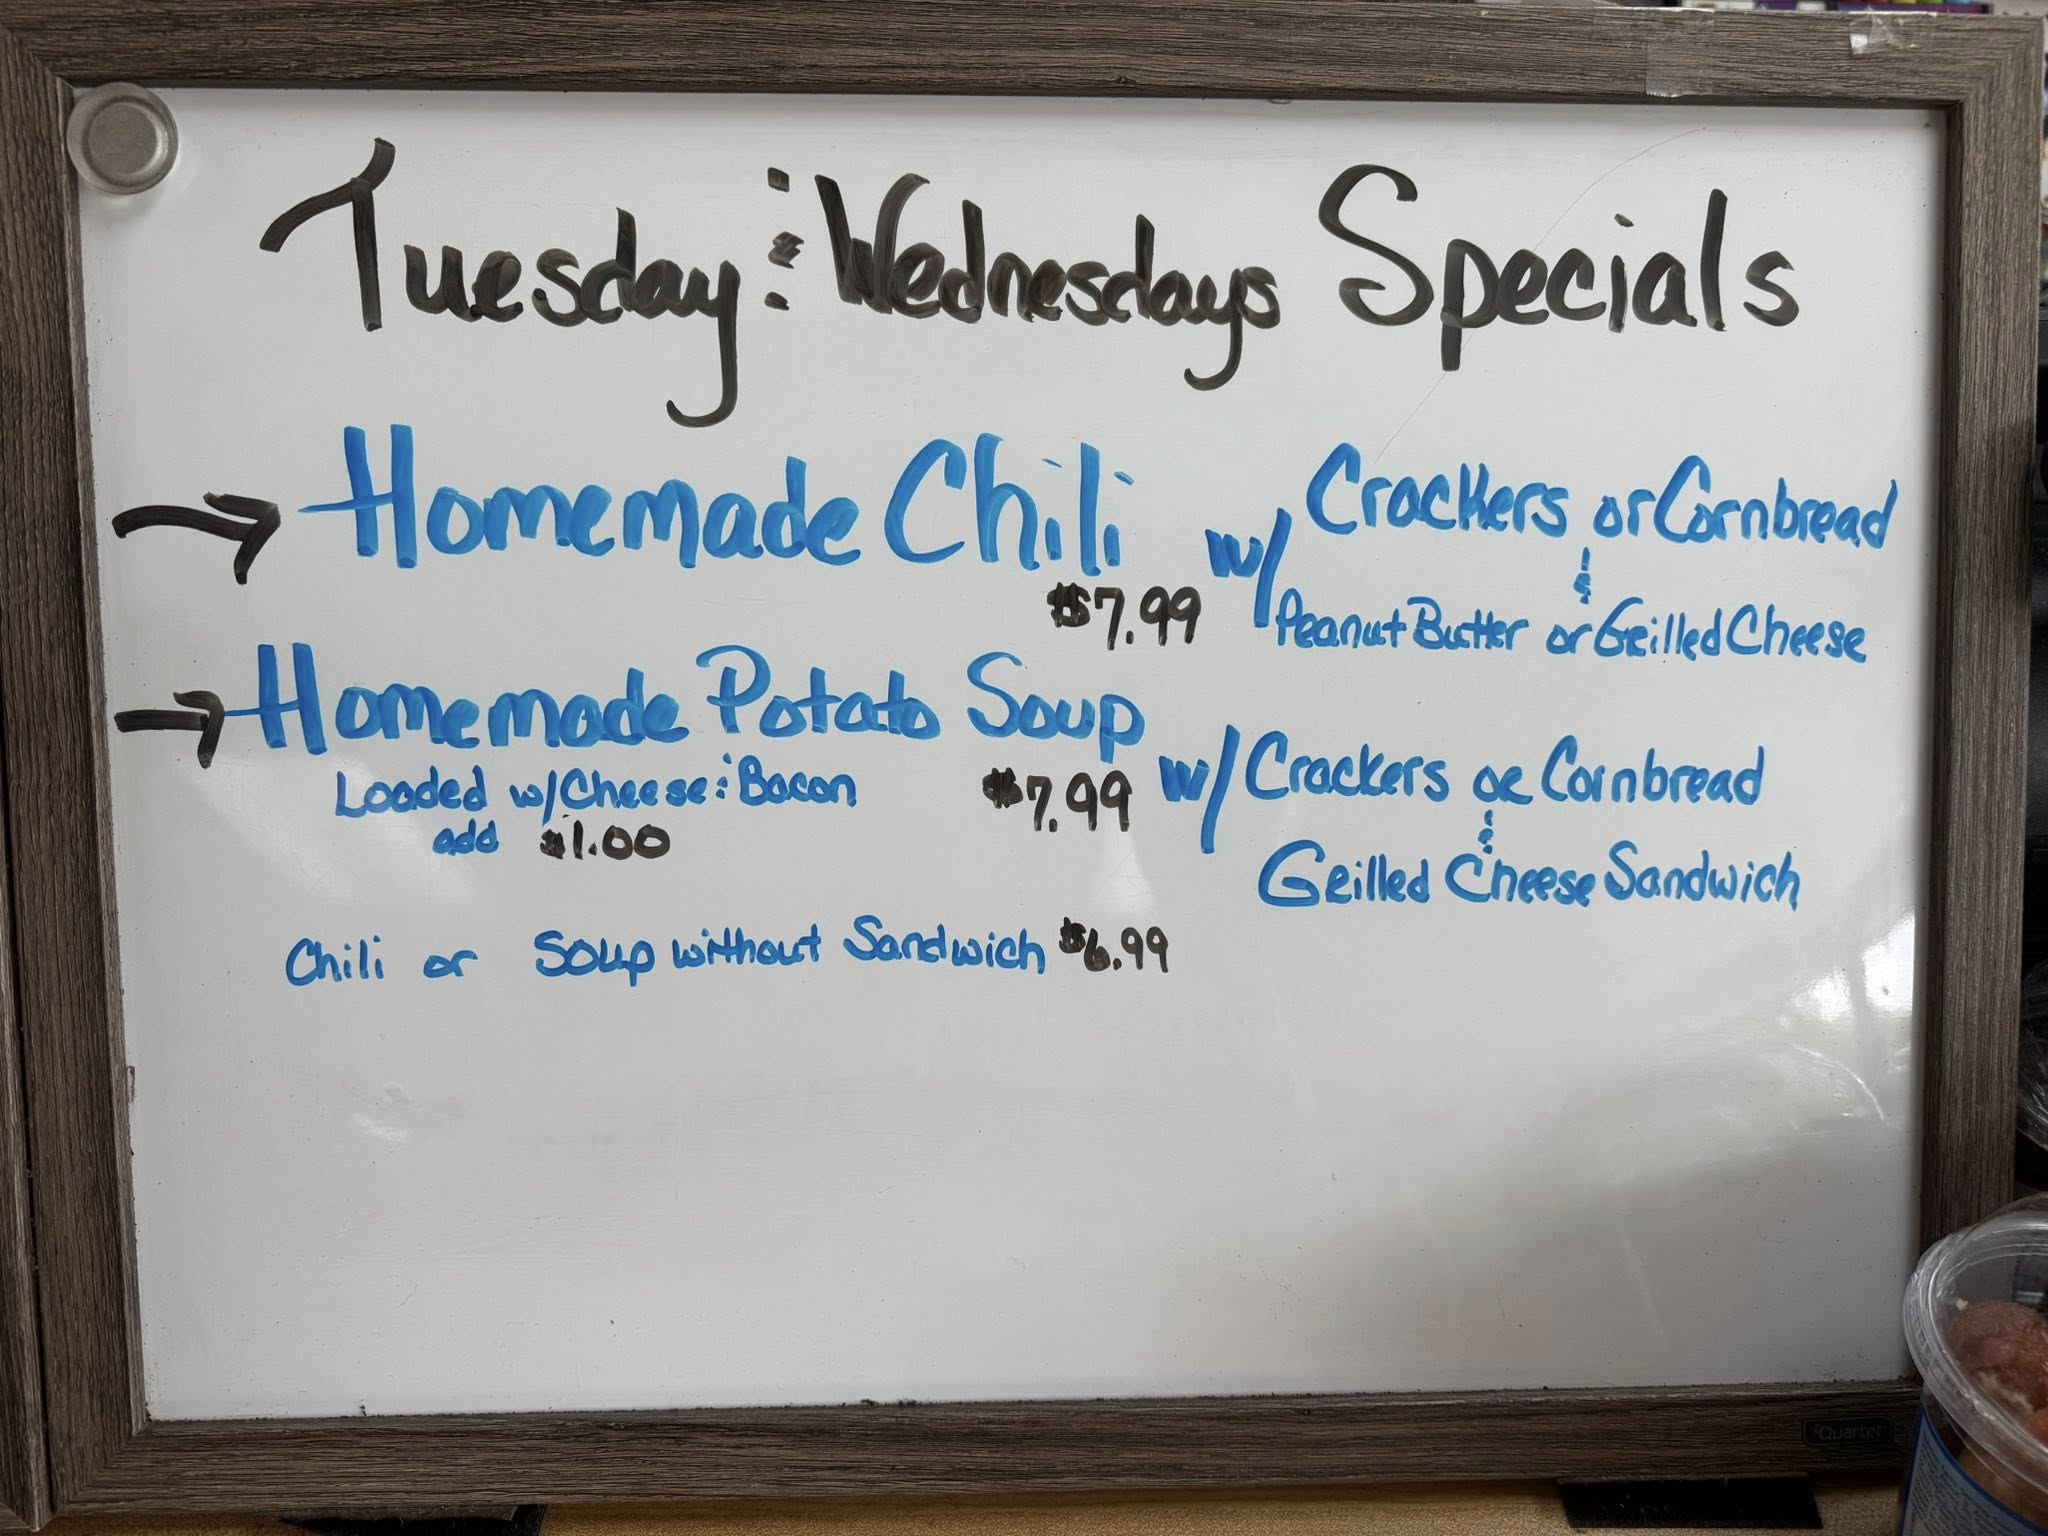 Tuesday & Wednesdays Specials
Homemade Chili w/ Crackers or Cornbread
&
$7.99 Peanut Butter or Grilled Cheese
Homemade Potato Soup
Loaded w/ Cheese & Bacon $7.99 w/ Crackers or Cornbread
add $1.00 &
Grilled Cheese Sandwich
Chili or Soup without Sandwich $6.99
Quartet